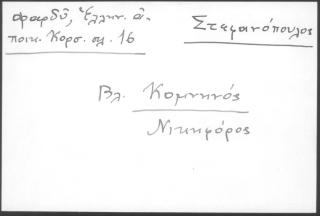 Φαρδῦ, Ἑλλην. ἀ-
ποικ. Κορσ. σλ. 16
Στεφανόπουλος
Βλ. Κομνηνός
Νικηφόρος